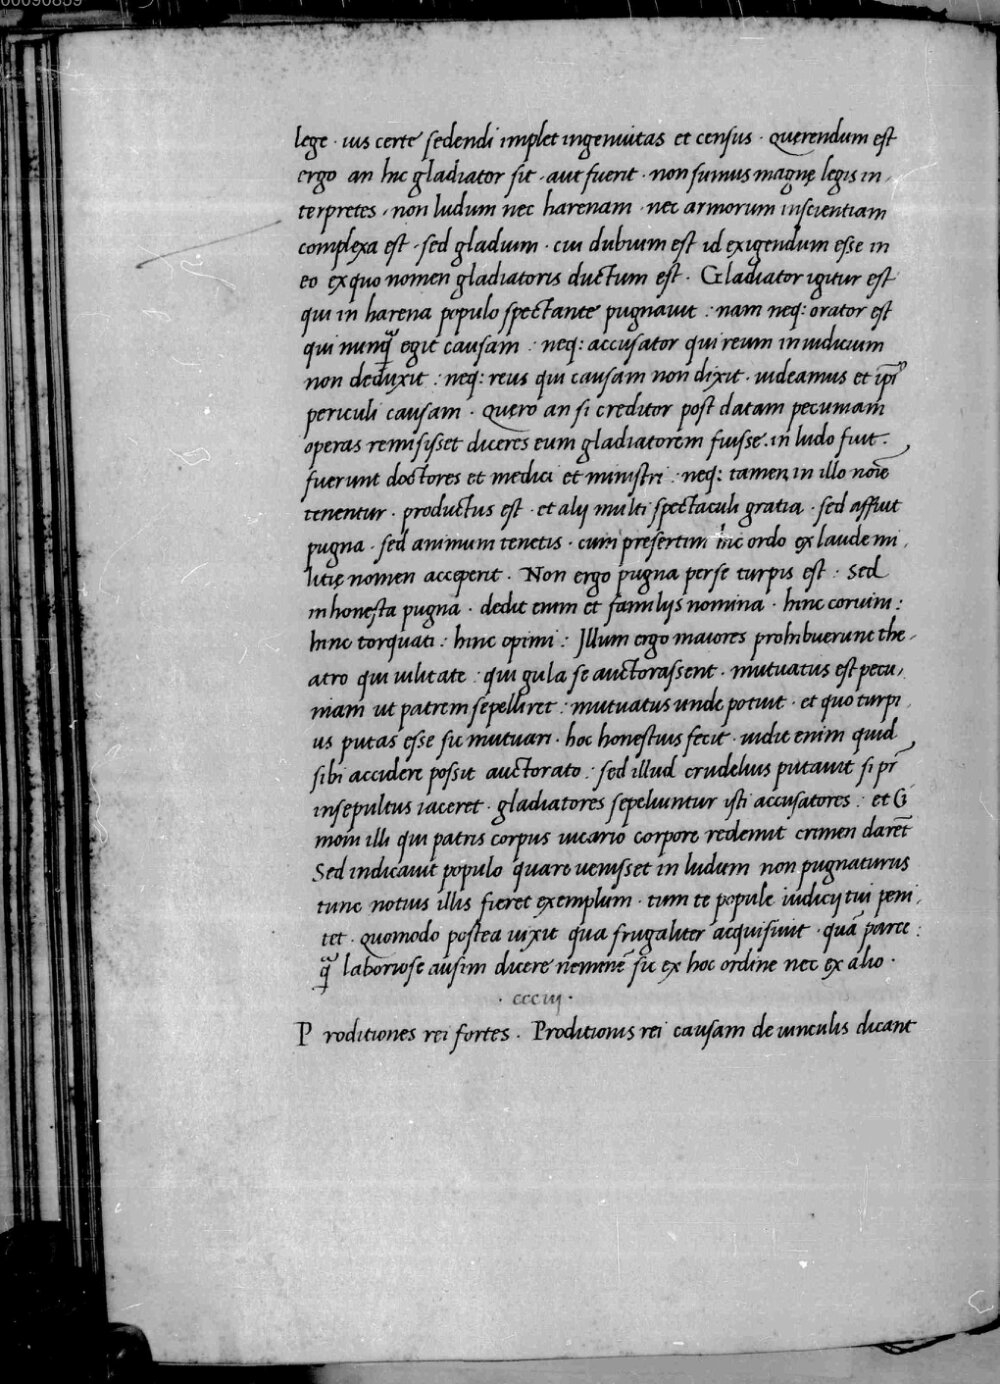 00090859
lege · ius certe sedendi implet ingenuitas et census · Querendum est
ergo an hic gladiator sit · aut fuerit · non sumus magnę legis in,
terpretes · non ludum nec harenam · nec armorum inscientiam
complexa est · sed gladium · cui dubium est id exigendum esse in
eo ex quo nomen gladiatoris ductum est · Gladiator igitur est
qui in harena populo spectante pugnauit : nam neq: orator est
qui nunq̃ egit causam : neq: accusator qui reum in iudicium
non deduxit : neq: reus qui causam non dixit · uideamus et ip̃i
periculi causam · Quero an si creditor post datam pecuniam
operas remisisset diceres eum gladiatorem fuisse. in ludo fuit.
fuerunt doctores et medici et ministri : neq: tamen in illo noīe
tenentur · productus est · et alij multi spectaculi gratia · sed affuit
pugna · sed animum tenetis · cum presertim hic ordo ex laude mi,
litię nomen acceperit · Non ergo pugna per se turpis est : Sed
inhonesta pugna · dedit enim et familijs nomina · hinc coruini :
hinc torquati : hinc opimi : Illum ergo maiores prohibuerunt the,
atro qui uilitate : qui gula se auctorassent · mutuatus est pecu,
niam ut patrem sepelliret : mutuatus unde potuit · et quo turpi,
us putas esse sic mutuari · hoc honestius fecit · uidit enim quid
sibi accidere possit auctorato : sed illud crudelius putauit si pr̃
insepultus iaceret · gladiatores sepeliuntur isti accusatores : et Ci
moni illi qui patris corpus uicario corpore redemit crimen darēt
Sed indicauit populo quare uenisset in ludum non pugnaturus
tunc notius illis fieret exemplum · tum te popule iudicij tui peni,
tet · Quomodo postea uixit qua frugaliter acquisiuit · quā parce :
q̃ laboriose ausim dicere neminē sic ex hoc ordine nec ex alio ·
· ccciij ·
P roditiones rei fortes · Proditionis rei causam de uinculis dicant